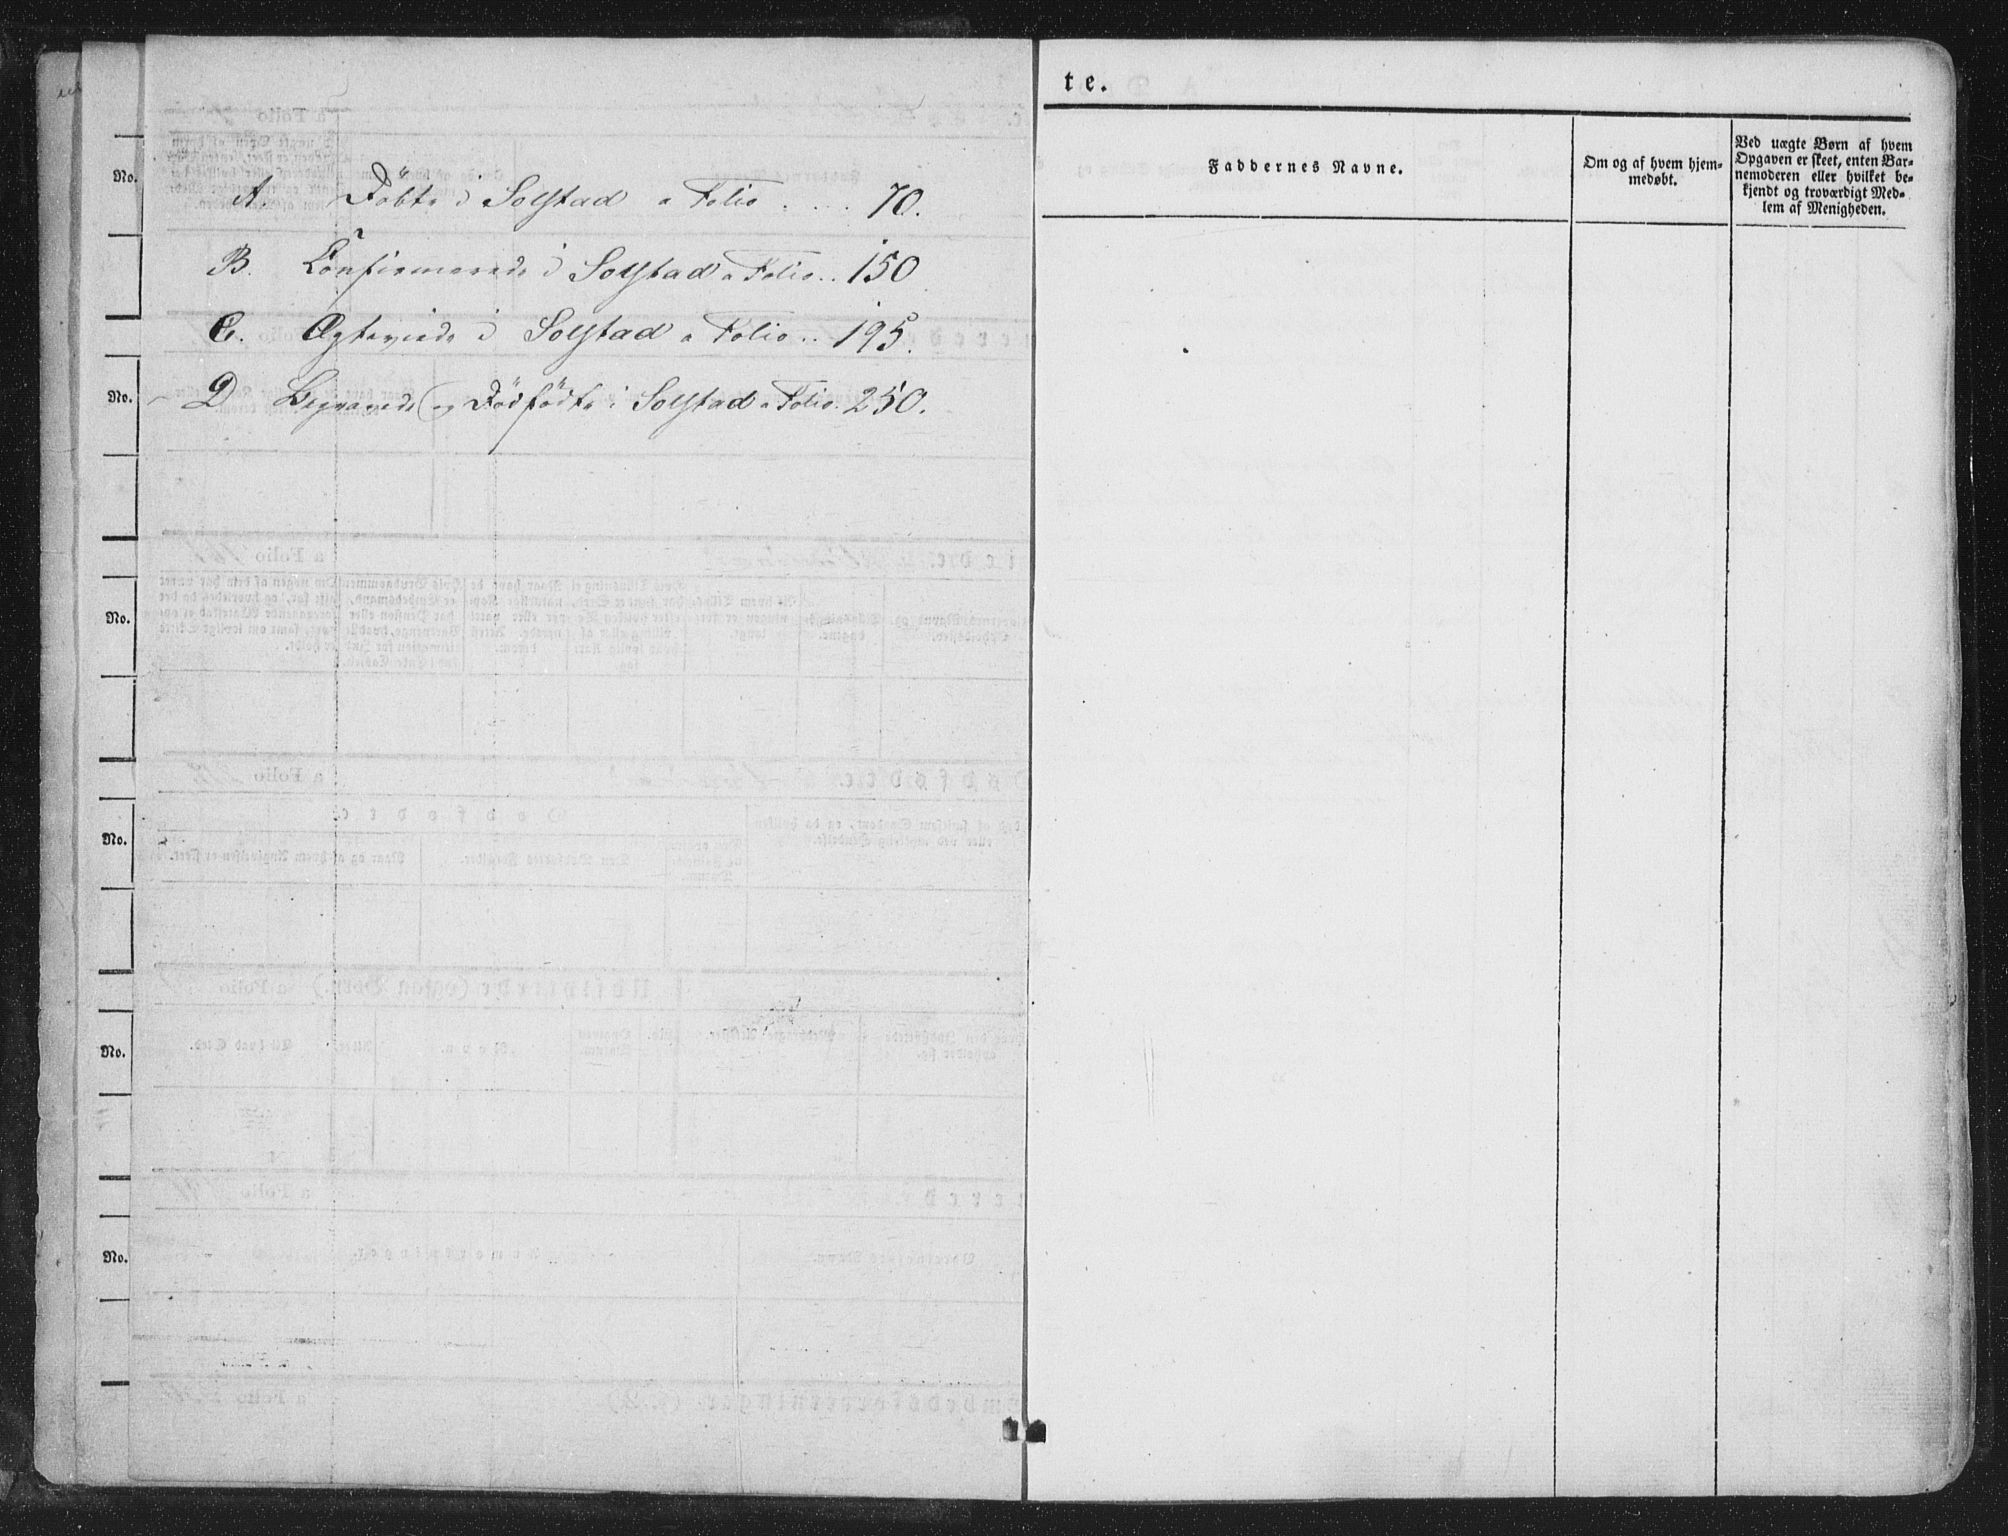 A. Döbte i Solstad a Folio .... 70.
B. Confirmerede i Solstad a Folio .. 150
C. Ægteviede i Solstad a Folio .. 195.
D Begravede og Dödfödte i Solstad a Folio. 250.
No.
No.
No.
No.
No.
No.
te.
Faddernes Navne.
Om og af hvem hjem-
medøbt.
Ved uægte Børn af hvem
Opgaven er skeet, enten Bar-
nemoderen eller hvilket be-
kjendt og troværdigt Med-
lem af Menigheden.